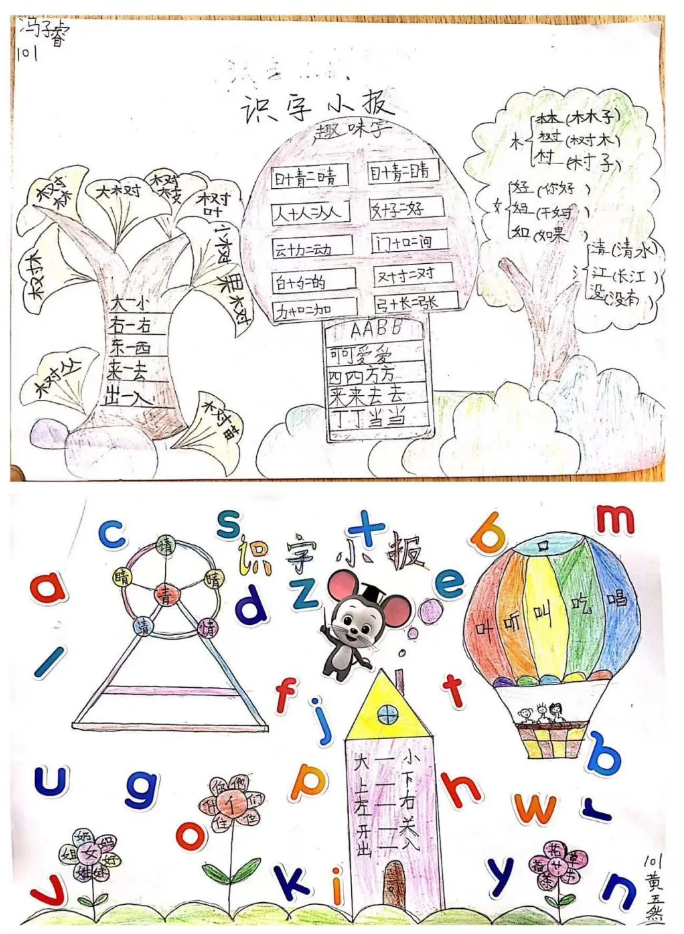 冯子睿
101
识字小报
趣味字
日+青=晴
目+青=睛
人+人=从
女+子=好
云+力=动
门+口=问
白+勺=的
又+寸=对
力+口=加
弓+长=张
AABB
可可爱爱
四四方方
来来去去
丁丁当当
树林
大树
树枝
树叶
小树
果树
树木
树丛
树苗
大—小
右—右
东—西
来—去
出—入
木
林(林子)
树(树木)
村(村子)
女
好(你好)
妈(干妈)
如(如果)
氵
清(清水)
江(长江)
没(没有)
识字小报
c
s
+
6
m
a
z
e
d
l
f
j
t
b
u
g
p
h
w
r
o
v
k
i
y
n
青
晴
睛
清
情
口
叶
听
叫
吃
唱
大—小
上—下
左—右
开—关
出—入
亻
你
们
什
住
女
奶
妈
好
妹
姐
艹
花
101
黄